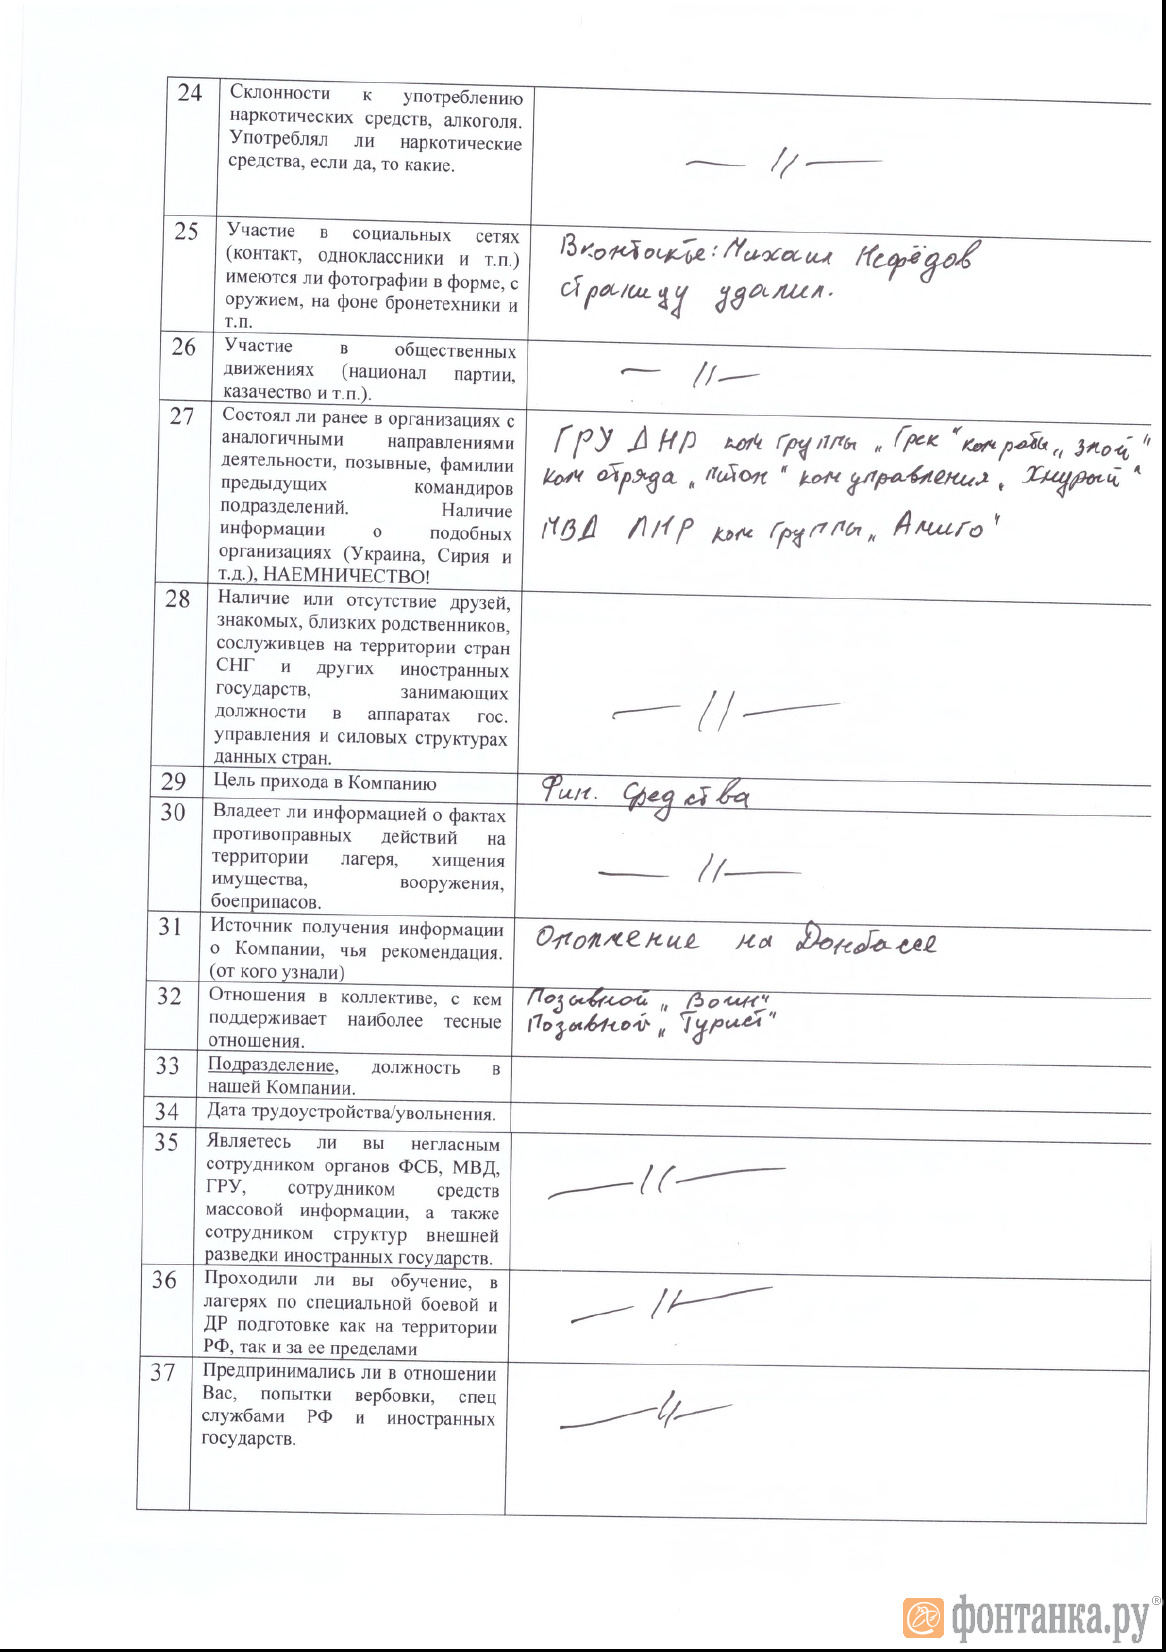 24
Склонности к употреблению
наркотических средств, алкоголя.
Употреблял ли наркотические
средства, если да, то какие.
— 11 —
25
Участие в социальных сетях
(контакт, одноклассники и т.п.)
имеются ли фотографии в форме, с
оружием, на фоне бронетехники и
т.п.
Вконтакте: Михаил Нефёдов
страницу удалил.
26
Участие в общественных
движениях (национал партии,
казачество и т.п.).
— 11 —
27
Состоял ли ранее в организациях с
аналогичными направлениями
деятельности, позывные, фамилии
предыдущих командиров
подразделений. Наличие
информации о подобных
организациях (Украина, Сирия и
т.д.), НАЕМНИЧЕСТВО!
ГРУ ДНР ком группы „Грек“ ком роты „Зной“
ком отряда „Питон“ ком управления „Хмурый“
МВД ЛНР ком группы „Амиго“
28
Наличие или отсутствие друзей,
знакомых, близких родственников,
сослуживцев на территории стран
СНГ и других иностранных
государств, занимающих
должности в аппаратах гос.
управления и силовых структурах
данных стран.
— 11 —
29
Цель прихода в Компанию
Фин. средства
30
Владеет ли информацией о фактах
противоправных действий на
территории лагеря, хищения
имущества, вооружения,
боеприпасов.
— 11 —
31
Источник получения информации
о Компании, чья рекомендация.
(от кого узнали)
Ополчение на Донбассе
32
Отношения в коллективе, с кем
поддерживает наиболее тесные
отношения.
Позывной „Воин“
Позывной „Турист“
33
Подразделение, должность в
нашей Компании.
34
Дата трудоустройства/увольнения.
35
Являетесь ли вы негласным
сотрудником органов ФСБ, МВД,
ГРУ, сотрудником средств
массовой информации, а также
сотрудником структур внешней
разведки иностранных государств.
— 11 —
36
Проходили ли вы обучение, в
лагерях по специальной боевой и
ДР подготовке как на территории
РФ, так и за ее пределами
— 11 —
37
Предпринимались ли в отношении
Вас, попытки вербовки, спец
службами РФ и иностранных
государств.
— 11 —
фонтанка.ру®